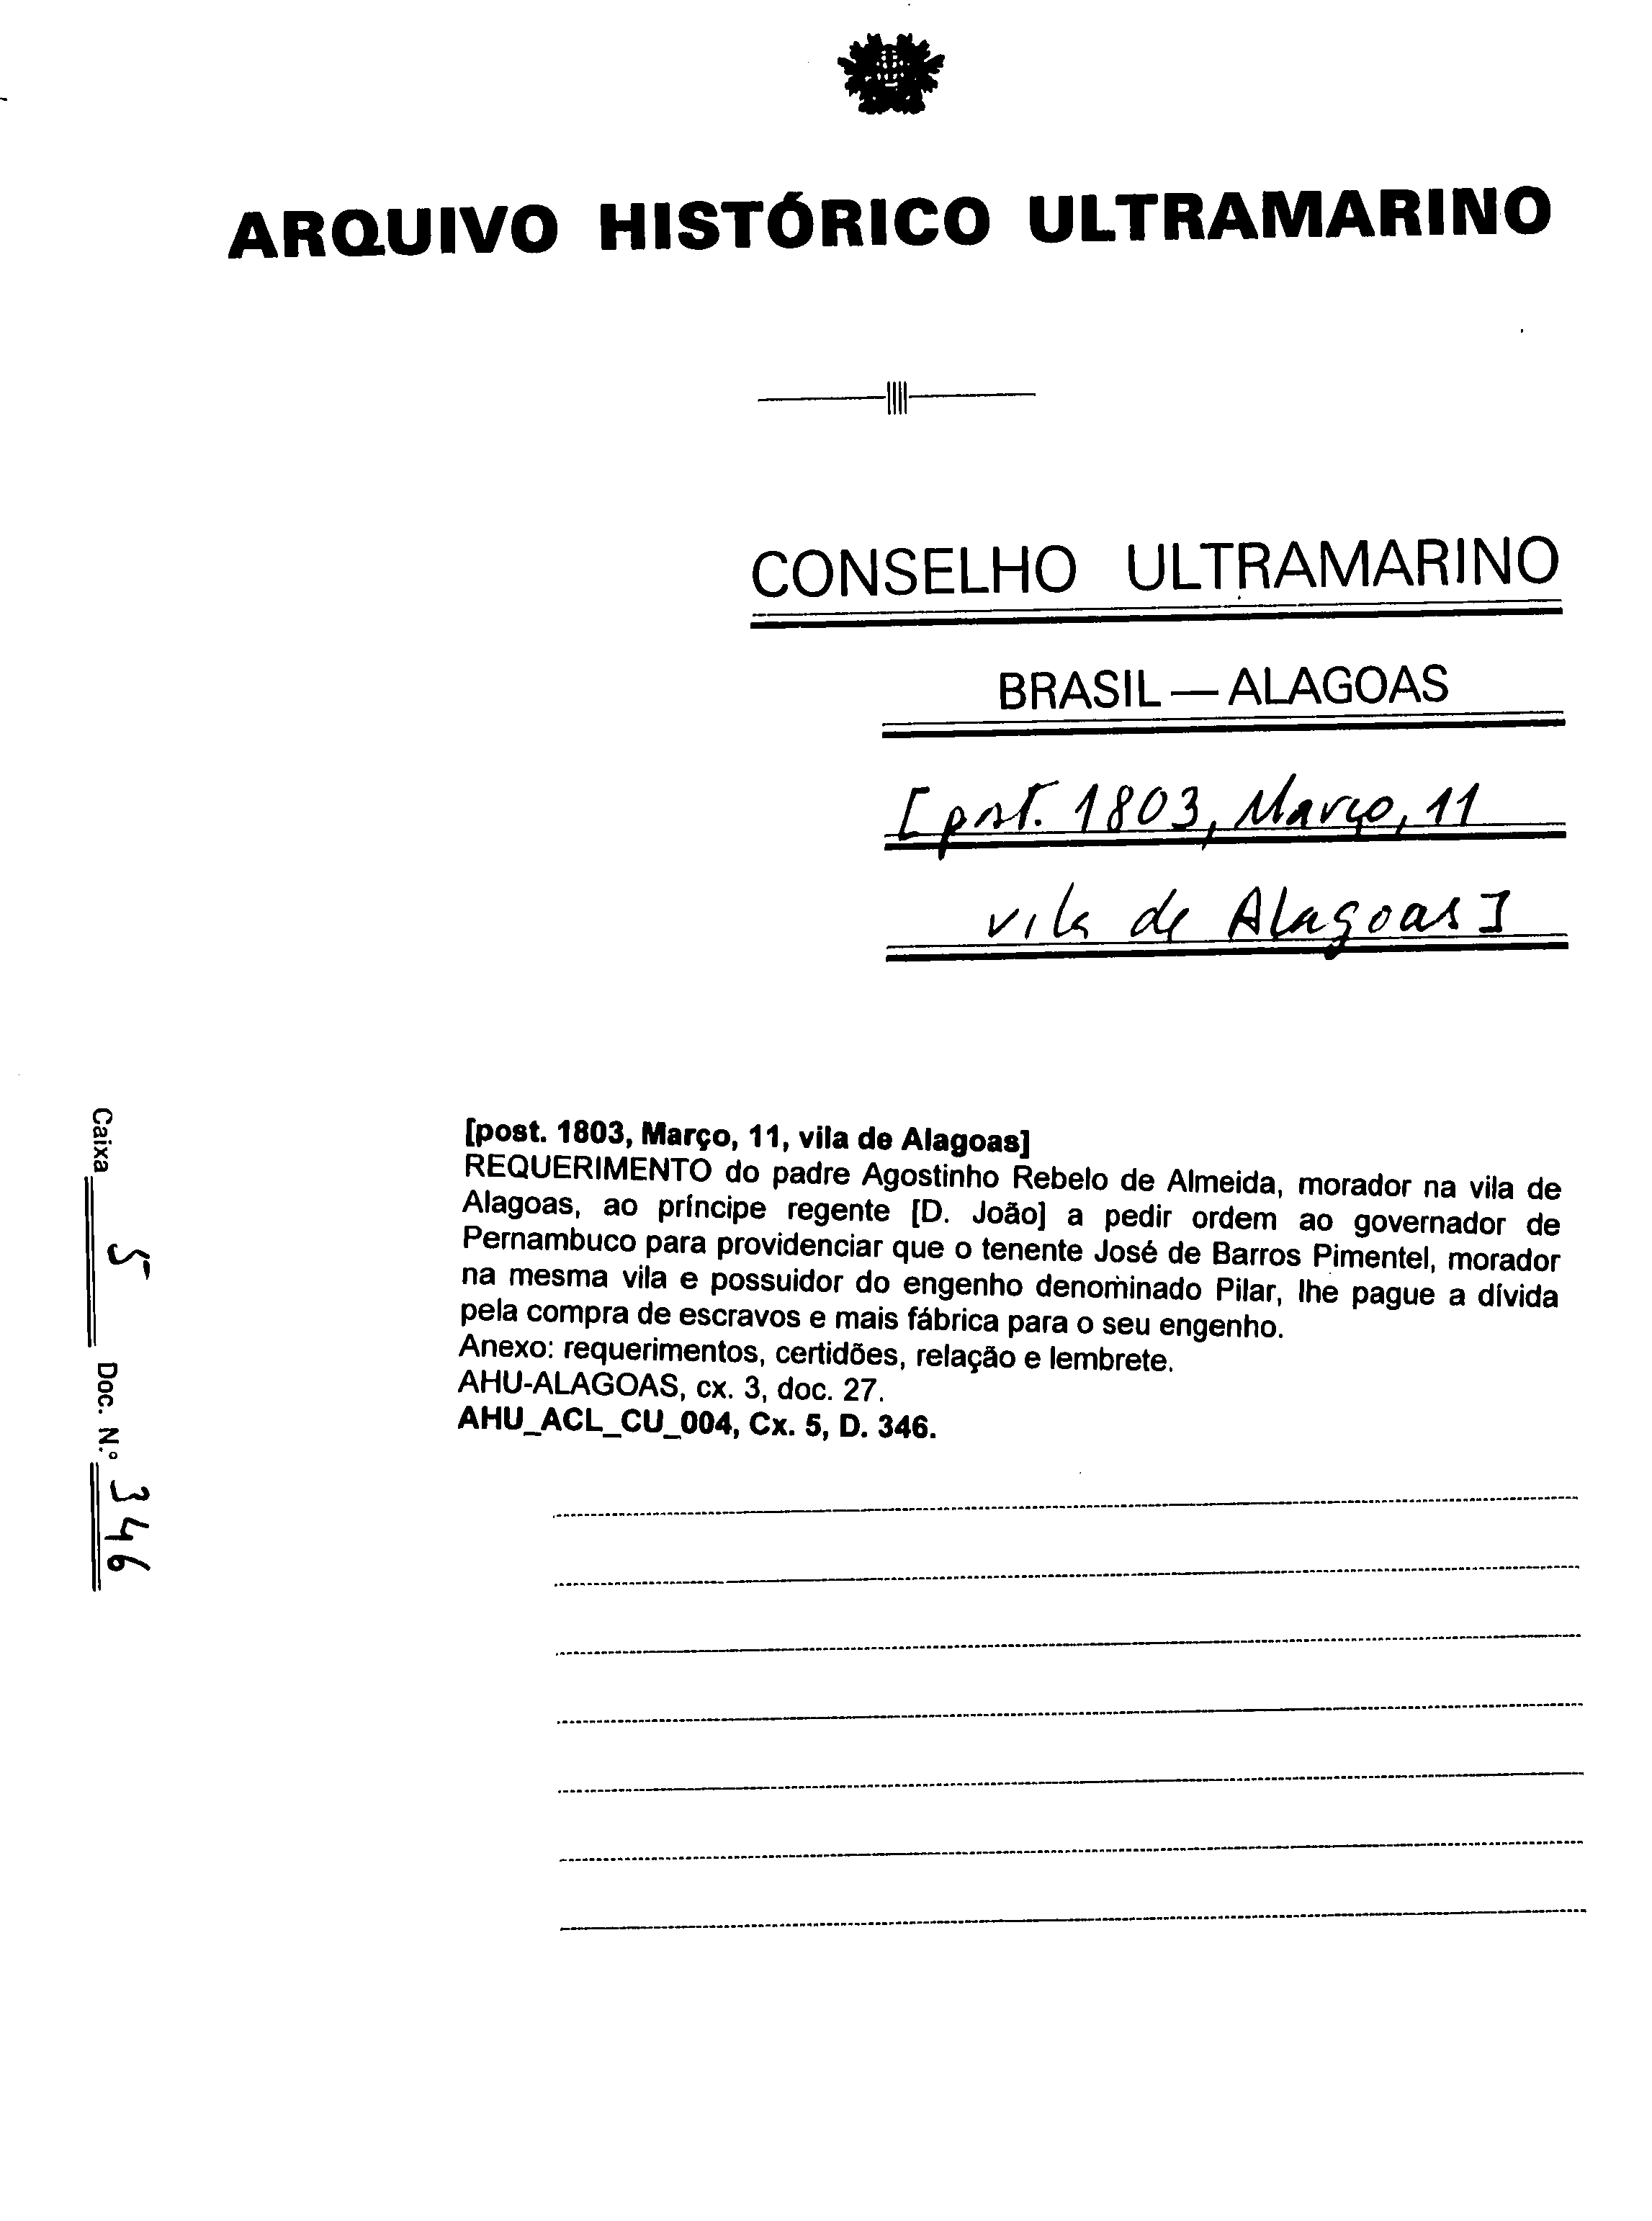 ARQUIVO HISTÓRICO ULTRAMARINO
CONSELHO ULTRAMARINO
BRASIL — ALAGOAS
[post. 1803, Março, 11
vila de Alagoas]
Caixa 5 Doc. N.º 346
[post. 1803, Março, 11, vila de Alagoas]
REQUERIMENTO do padre Agostinho Rebelo de Almeida, morador na vila de
Alagoas, ao príncipe regente [D. João] a pedir ordem ao governador de
Pernambuco para providenciar que o tenente José de Barros Pimentel, morador
na mesma vila e possuidor do engenho denominado Pilar, lhe pague a dívida
pela compra de escravos e mais fábrica para o seu engenho.
Anexo: requerimentos, certidões, relação e lembrete.
AHU-ALAGOAS, cx. 3, doc. 27.
AHU_ACL_CU_004, Cx. 5, D. 346.